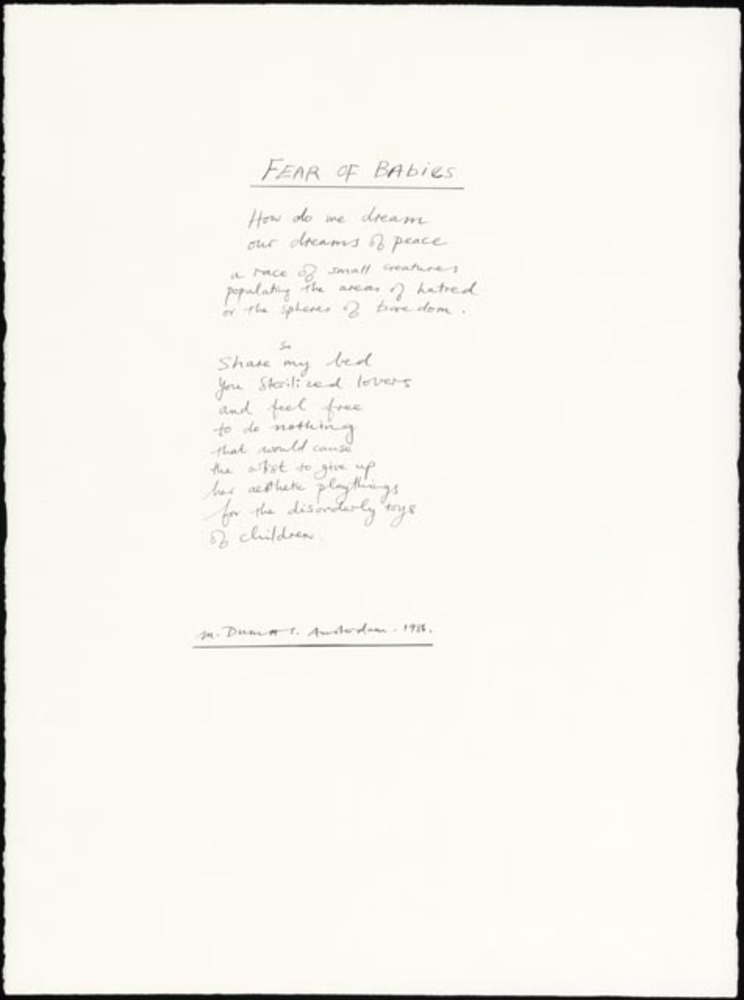 FEAR OF BAbies
How do we dream
our dreams of peace
a race of small creatures
populating the areas of hatred
or the spheres of boredom.
so
Share my bed
You Sterilized lovers
and feel free
to do nothing
that would cause
the artist to give up
her aesthetic playthings
for the disorderly toys
of children.
M. DUMAS. Amsterdam. 1986.